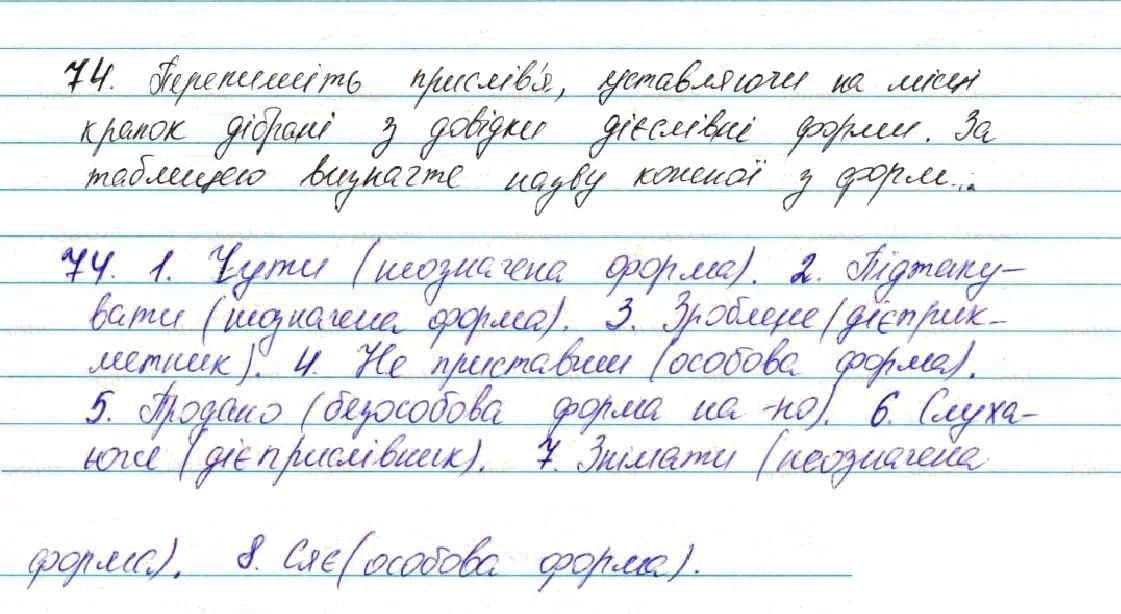 74. Перепишіть прислів'я, уставляючи на місці
крапок дібрані з довідки дієслівні форми. За
таблицею визначте назву кожної з форм...
74. 1. Чути (неозначена форма). 2. Підтаку-
вати (неозначена форма). 3. Зроблене (дієприк-
метник). 4. Не приставши (особова форма).
5. Продано (безособова форма на -но). 6. Слуха-
ючи (дієприслівник). 7. Знімати (неозначена
форма). 8. Сяє (особова форма).